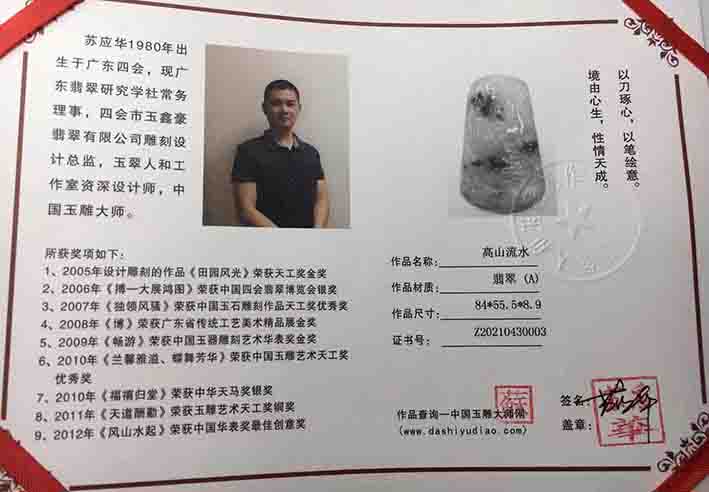 苏应华1980年出
生于广东四会，现广
东翡翠研究学社常务
理事，四会市玉鑫豪
翡翠有限公司雕刻设
计总监，玉翠人和工
作室资深设计师，中
国玉雕大师。
以刀琢心，以笔绘意。
境由心生，性情天成。
所获奖项如下：
1、2005年设计雕刻的作品《田园风光》荣获天工奖金奖
2、2006年《搏一大展鸿图》荣获中国四会翡翠博览会银奖
3、2007年《独领风骚》荣获中国玉石雕刻作品天工奖优秀奖
4、2008年《博》荣获广东省传统工艺美术精品展金奖
5、2009年《畅游》荣获中国玉器雕刻艺术华表奖金奖
6、2010年《兰馨雅溢、蝶舞芳华》荣获中国玉雕艺术天工奖
优秀奖
7、2010年《福禧归堂》荣获中华天马奖银奖
8、2011年《天道酬勤》荣获玉雕艺术天工奖铜奖
9、2012年《风山水起》荣获中国华表奖最佳创意奖
作品名称： 高山流水
作品材质： 翡翠 (A)
作品尺寸： 84*55.5*8.9
证书号： Z20210430003
作品查询一中国玉雕大师网
(www.dashiyudiao.com)
签名：
盖章：